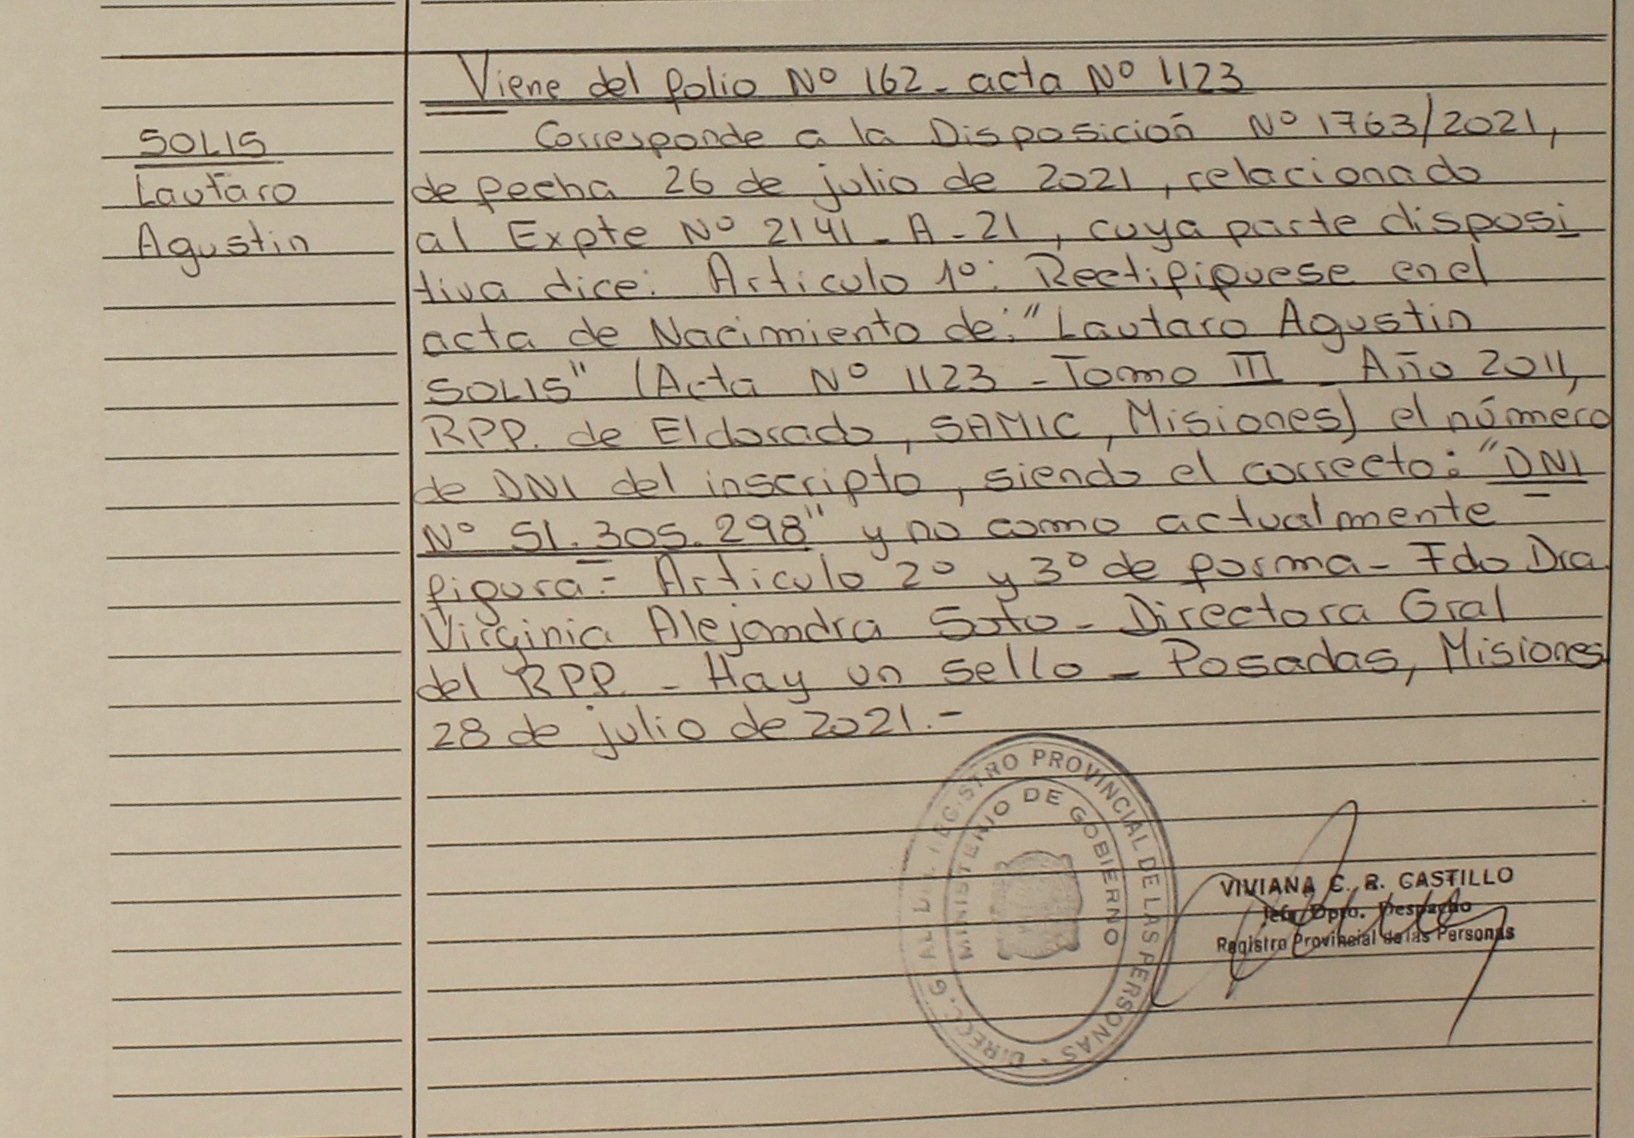 Viene del folio Nº 162 - acta Nº 1123
SOLIS
Lautaro
Agustin
Corresponde a la Disposición Nº 1763/2021,
de fecha 26 de julio de 2021, relacionado
al Expte Nº 2141 - A - 21, cuya parte disposi
tiva dice: Articulo 1º: Rectifíquese en el
acta de Nacimiento de: "Lautaro Agustin
SOLIS" (Acta Nº 1123 - Tomo III - Año 2011,
RPP. de Eldorado, SAMIC, Misiones) el número
de DNI del inscripto, siendo el correcto: "DNI
Nº 51.305.298" y no como actualmente
figura.- Articulo 2º y 3º de forma - Fdo Dra.
Virginia Alejandra Soto - Directora Gral
del RPP. - Hay un sello - Posadas, Misiones
28 de julio de 2021.-
DIRECC. GRAL DEL REGISTRO PROVINCIAL DE LAS PERSONAS -
MINISTERIO DE GOBIERNO
VIVIANA C. R. CASTILLO
Jefa Dpto. Despacho
Registro Provincial de las Personas